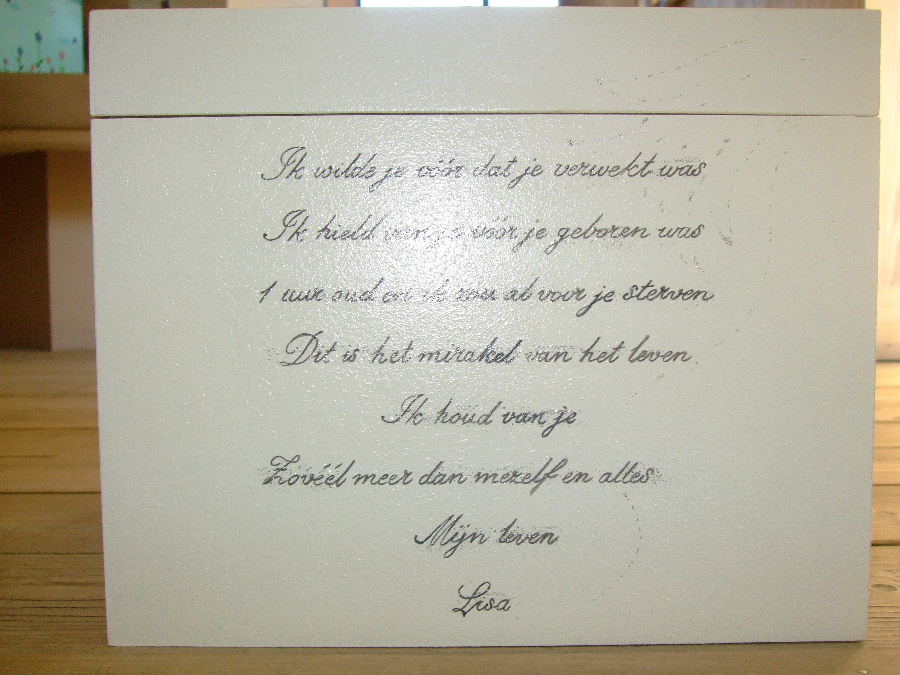 Ik wilde je vóór dat je verwekt was
Ik hield van je vóór je geboren was
1 uur oud en ik zou al voor je sterven
Dit is het mirakel van het leven
Ik houd van je
Zovéél meer dan mezelf en alles
Mijn leven
Lisa